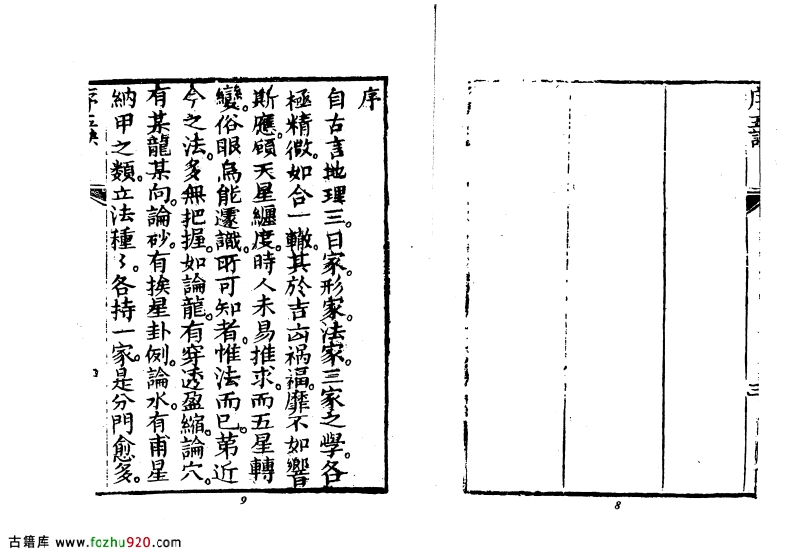 序
自古言地理三曰家。形家。法家。三家之學。各
極精微。如合一轍。其於吉凶禍福。靡不如響
斯應。顧天星纏度。時人未易推求。而五星轉
變。俗眼烏能遽識。所可知者。惟法而已。第近
今之法。多無把握。如論龍。有穿透盈縮。論穴。
有某龍某向。論砂。有挨星卦例。論水。有甫星
納甲之類。立法種〻。各持一家。是分門愈多。
9
8
古籍库 www.fozhu920.com